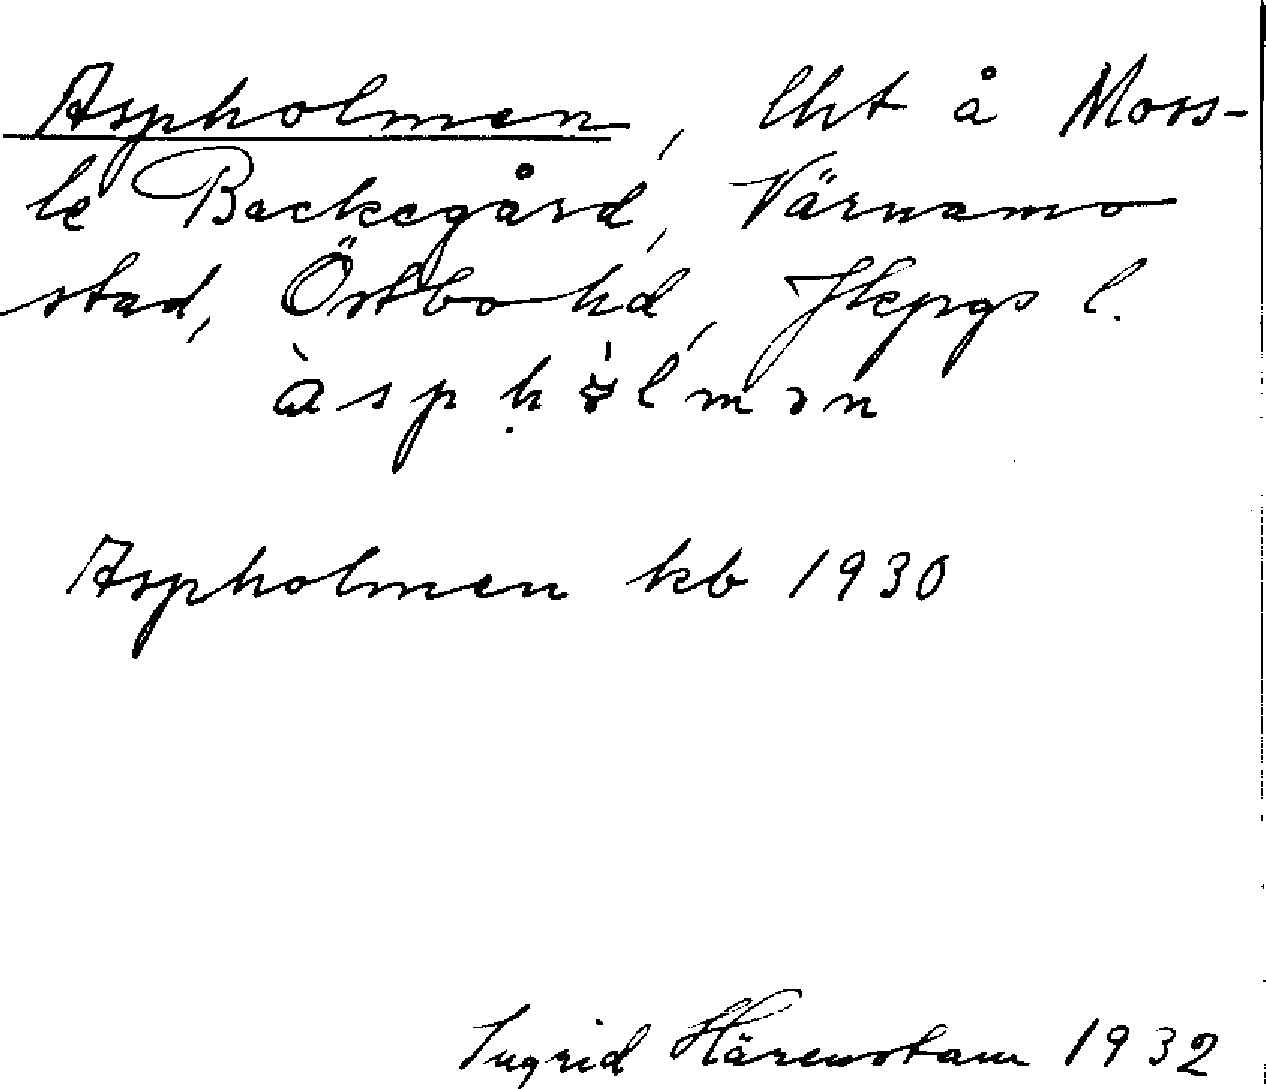 Aspholmen, lht å Moss-
le Backegård, Värnamo
stad, Östbo hd, Jkpgs l.
Aspholmen kb 1930
Ingrid Härenstam 1932